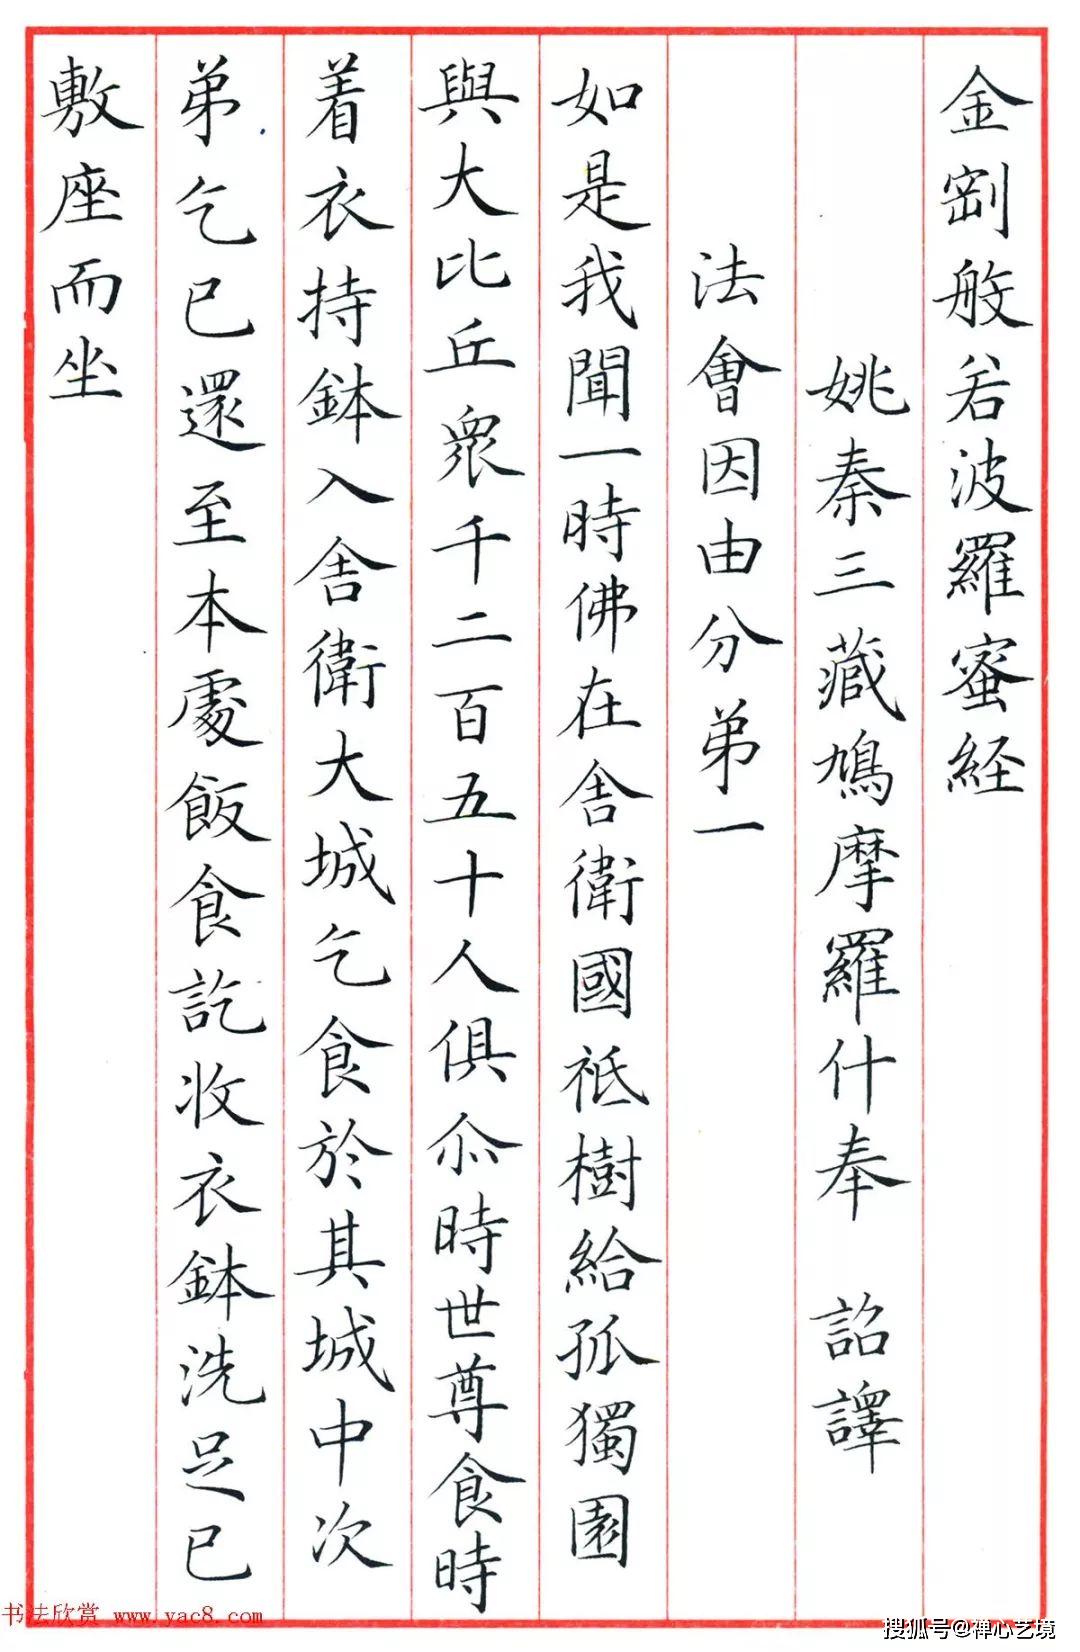 金剛般若波羅蜜経
姚秦三藏鳩摩羅什奉 詔譯
法會因由分弟一
如是我聞一時佛在舍衛國祇樹給孤獨園
與大比丘眾千二百五十人俱尒時世尊食時
着衣持鉢入舍衛大城乞食於其城中次
弟乞已還至本處飯食訖收衣鉢洗足已
敷座而坐
书法欣赏 www.yac8.com
搜狐号@禅心艺境